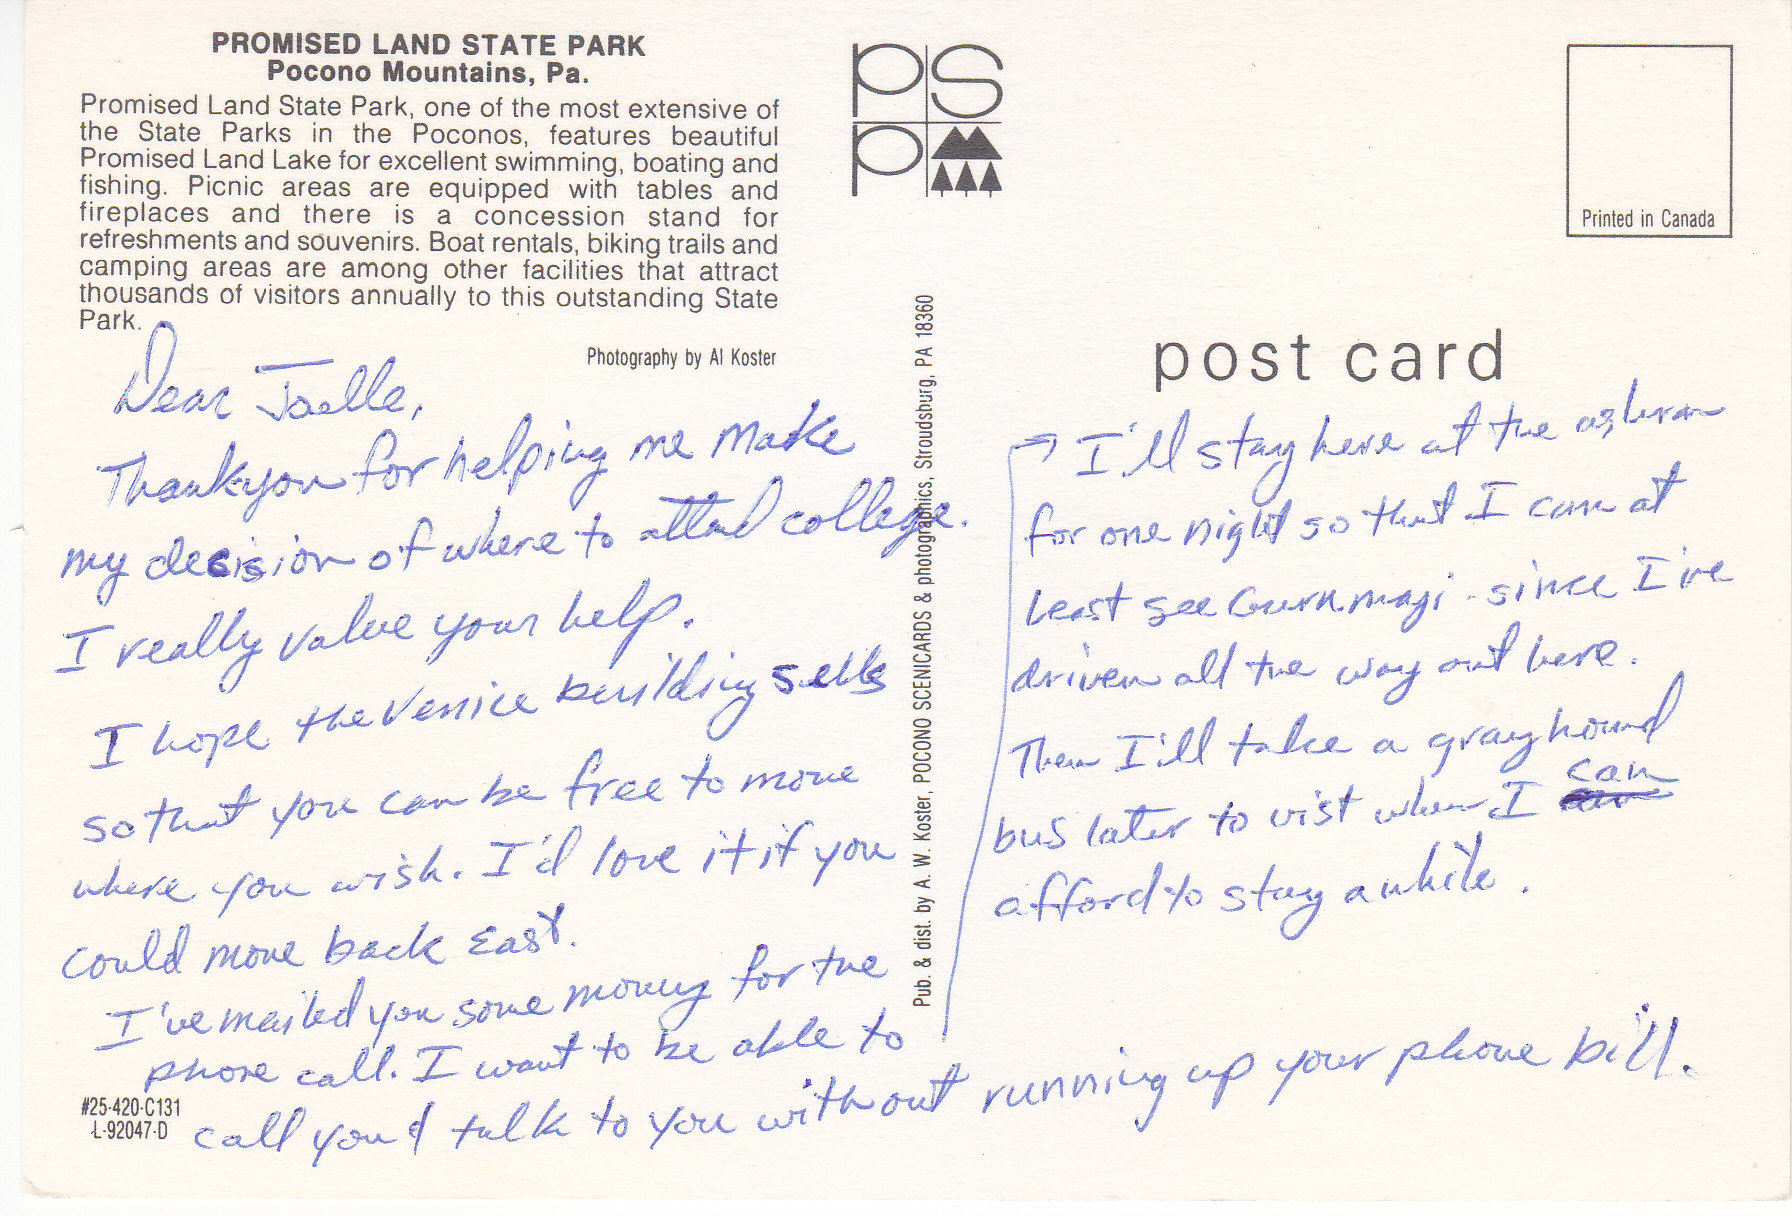 PROMISED LAND STATE PARK
Pocono Mountains, Pa.
Promised Land State Park, one of the most extensive of
the State Parks in the Poconos, features beautiful
Promised Land Lake for excellent swimming, boating and
fishing. Picnic areas are equipped with tables and
fireplaces and there is a concession stand for
refreshments and souvenirs. Boat rentals, biking trails and
camping areas are among other facilities that attract
thousands of visitors annually to this outstanding State
Park.
Photography by Al Koster
Dear Joelle,
Thankyou for helping me make
my decision of where to attend college.
I really value your help.
I hope the Venice building sells
so that you can be free to move
where you wish. I'd love it if you
could move back East.
I've mailed you some money for the
phone call. I want to be able to
call you & talk to you without running up your phone bill.
#25-420-C131
L-92047-D
psp
Pub. & dist. by A. W. Koster, POCONO SCENICARDS & photographics, Stroudsburg, PA 18360
Printed in Canada
post card
I'll stay here at the ashram
for one night so that I can at
least see Gurumayi - since I've
driven all the way out here.
Then I'll take a grayhound
bus later to vist when I can
afford to stay awhile.